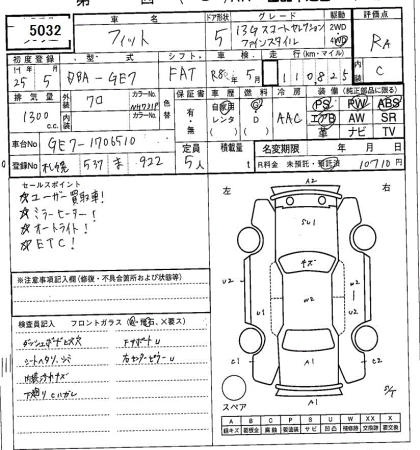 5032
車名
フィット
ドア形状
5
グレード
13G スマートセレクション
ファインスタイル
駆動
2WD
4WD
評価点
RA
初度登録
型・式
シフト
車検
走行 (km・マイル)
内装
H 25年 5月
DBA-GE7
FAT
R8年 5月
110825
C
排気量
1300 cc
外装
クロ
カラーNo.
NH731P
内装
カラーNo.
色替
保証書
有・無
車歴
自家用
レンタ
燃料
G
D
冷房
AAC
装備 (純正部品に限る)
PS PW ABS
エアB AW SR
革 ナビ TV
車台No
GE7-1706510
登録No
札幌 537 ま 922
定員
5人
積載量
t
名変期限 年 月 日
R料金 未預託・預託済 10710円
セールスポイント
☆ユーザー買取車!
☆ミラーヒーター!
☆オートライト!
☆ETC!
※注意事項記入欄 (修復・不具合箇所および状態等)
検査員記入 フロントガラス (傷・飛石、×要ス)
ダッシュボードビス穴
シートヘタリ、シミ
内装キズ
下廻りCハガレ
左 右
A2
SU1
キズ
U2
U2
W2
U1
U1
C1
C2
A1
A1
スペア
A B C P S U W XX X
線キズ 要板金 腐食 要塗装 サビ 凹凸 補修跡 交換跡 要交換